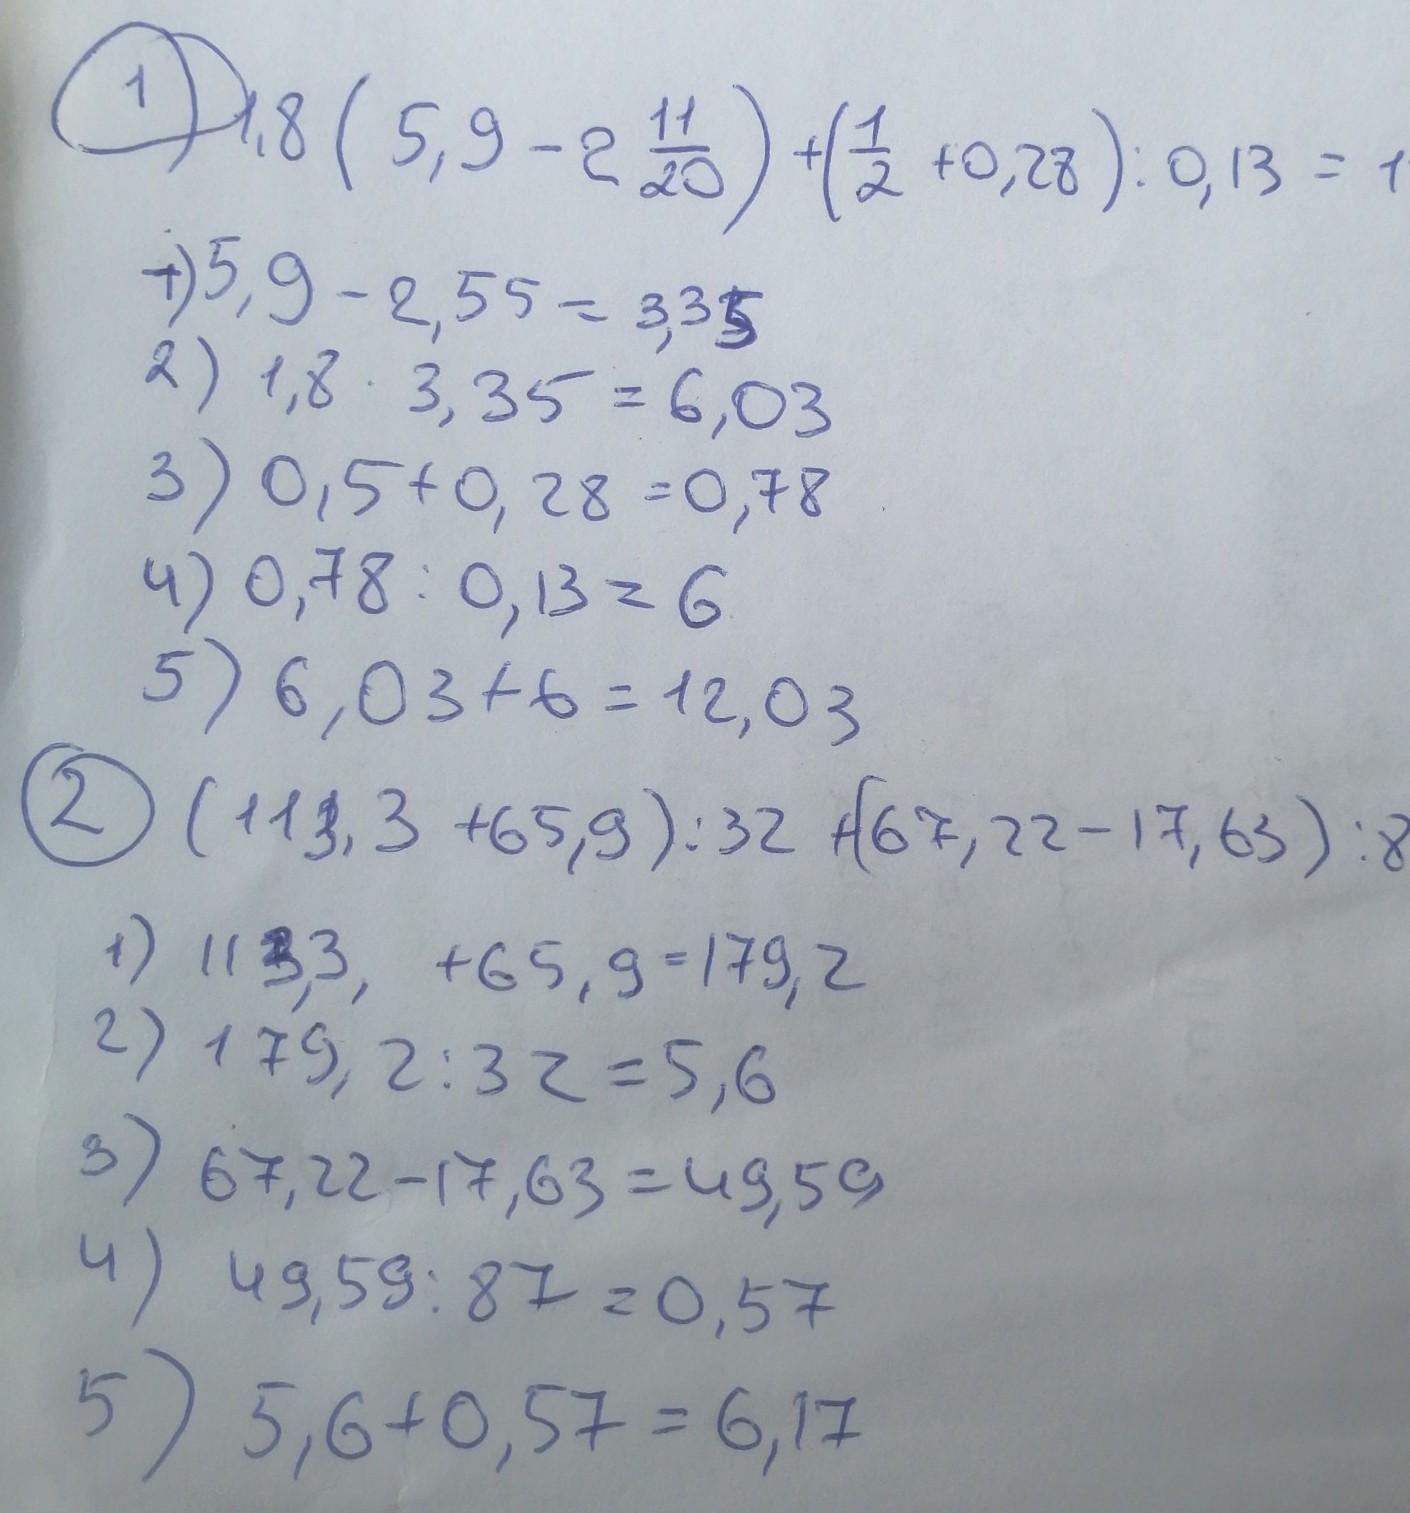 1) 1,8 ( 5,9 - 2 11/20 ) + ( 1/2 + 0,28 ) : 0,13 = 1
1) 5,9 - 2,55 = 3,35
2) 1,8 · 3,35 = 6,03
3) 0,5 + 0,28 = 0,78
4) 0,78 : 0,13 = 6
5) 6,03 + 6 = 12,03
2 (113,3 + 65,9) : 32 + (67,22 - 17,63) : 8
1) 113,3, + 65,9 = 179,2
2) 179,2 : 32 = 5,6
3) 67,22 - 17,63 = 49,59
4) 49,59 : 87 = 0,57
5) 5,6 + 0,57 = 6,17